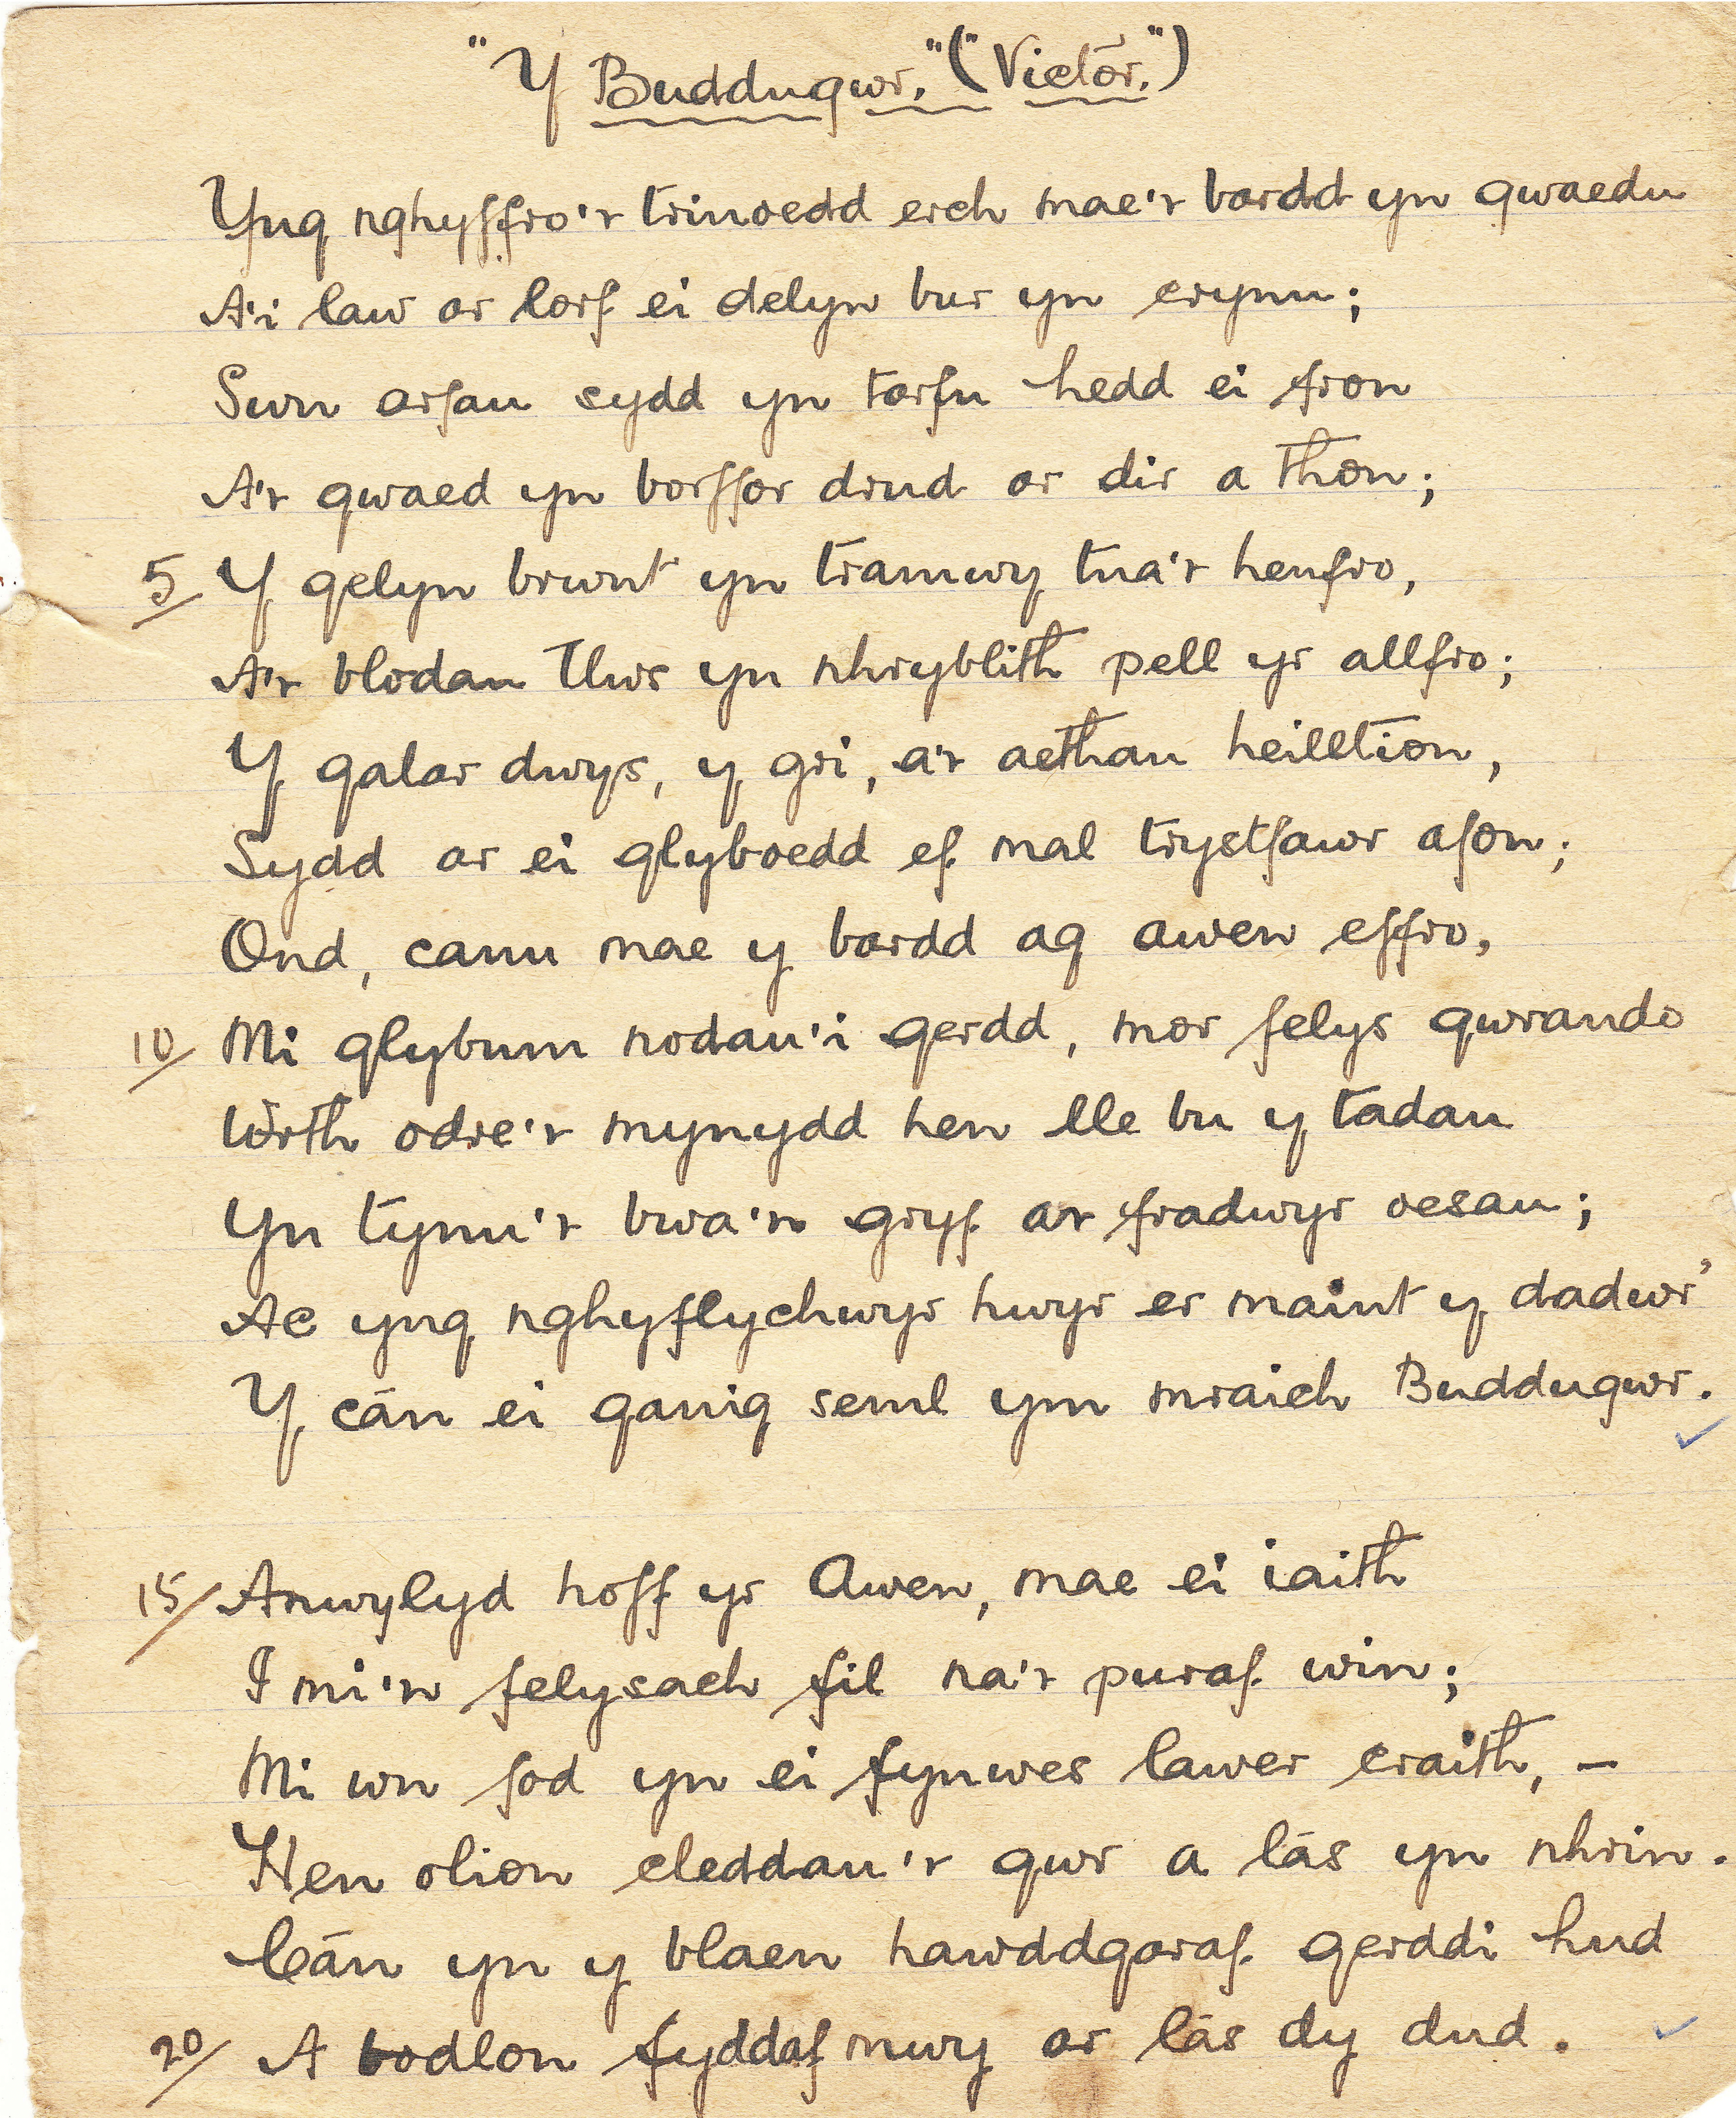 "Y Buddugwr." ("Victor.")
Yng nghyffro'r trinoedd erch mae'r bardd yn gwaedu
A'i law ar lorf ei delyn bur yn crynu;
Swn arfau sydd yn tarfu hedd ei fron
A'r gwaed yn borffor drud ar dir a thon;
5/ Y gelyn brwnt yn tramwy tua'r henfro,
A'r blodau tlws yn nhryblith pell yr allfro;
Y galar dwys, y gri, a'r aethau heilltion,
Sydd ar ei glyboedd ef mal trystfawr afon;
Ond, canu mae y bardd ag awen effro,
10/ Mi glybum nodau'i gerdd, mor felys gwrando
Wrth odre'r mynydd hen lle bu y tadau
Yn tynu'r bwa'n gryf ar fradwyr oesau;
Ac yng nghyflychwyr hwyr er maint y dadwr'
Y cân ei ganig seml ym mraich Buddugwr.
15/ Anwylyd hoff yr Awen, mae ei iaith
I mi'n felysach fil na'r puraf win;
Mi wn fod yn ei fynwes lawer craith, –
Hen olion cleddau'r gwr a lâs yn nhrin.
Cân yn y blaen hawddgaraf gerddi hud
20/ A bodlon fyddaf mwy ar lâs dy dud.